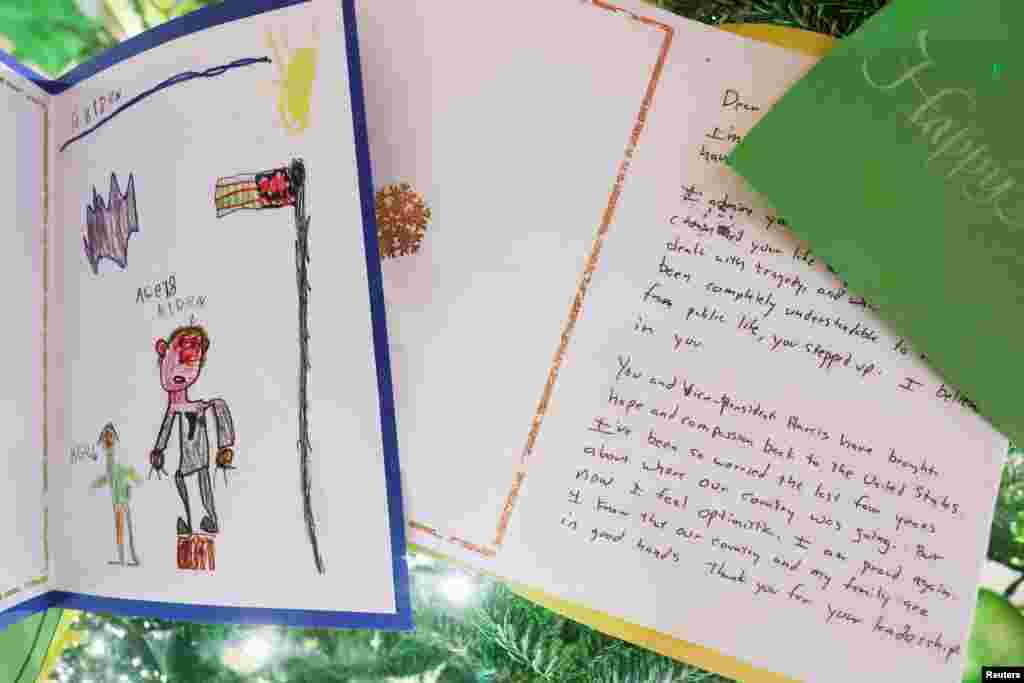 AIDEN
AGE
AIDEN
Dear
I'm
hav
I admire yo
changed your life
dealt with tragedy, and
been completely understandable to
from public life, you stepped up. I believe
in you
You and Vice-President Harris have brought
hope and compassion back to the United States.
I've been so worried the last few years
about where our country was going. But
now I feel optimistic. I am proud again.
I know that our country and my family are
in good hands. Thank you for your leadership.
Happy
Reuters